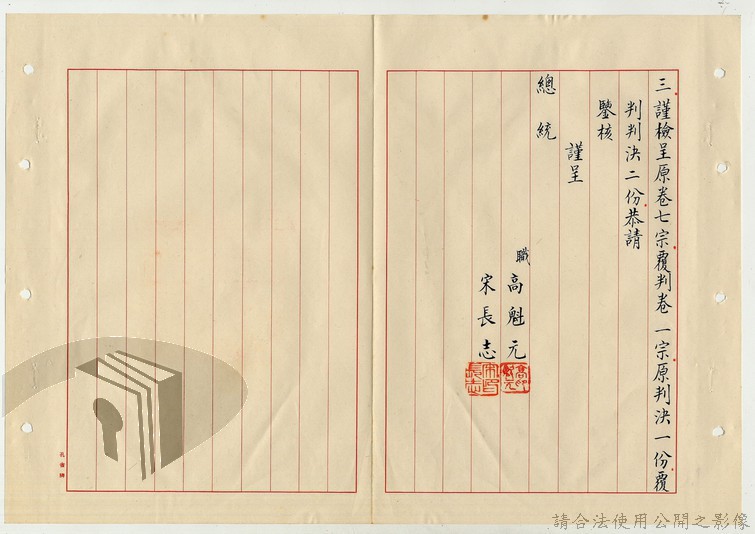 三謹檢呈原卷七宗覆判卷一宗原判決一份覆
判判決二份恭請
鑒核
謹呈
總統
職高魁元
宋長志
請合法使用公開之影像